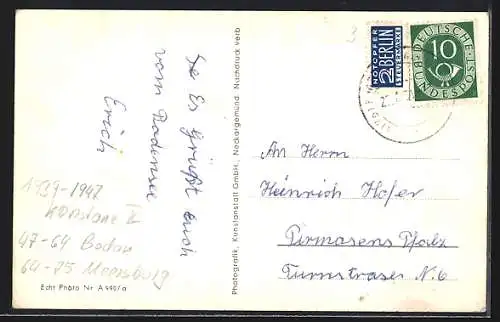 3
NOTOPFER
2 BERLIN
STEUERMARKE
DEUTSCHE
10
BUNDESPOST
Es Grüßt euch
vom Bodensee
Erich
1939-1947
Konstanz
47-64 Bodan
64-75 Meersburg
Echt Photo Nr A 990/a
Photografik, Konstanstalt GmbH., Neckargemünd. Nachdruck verb
An Herrn
Heinrich Hofer
Pirmasens Pfalz
Turnstraser N. 6